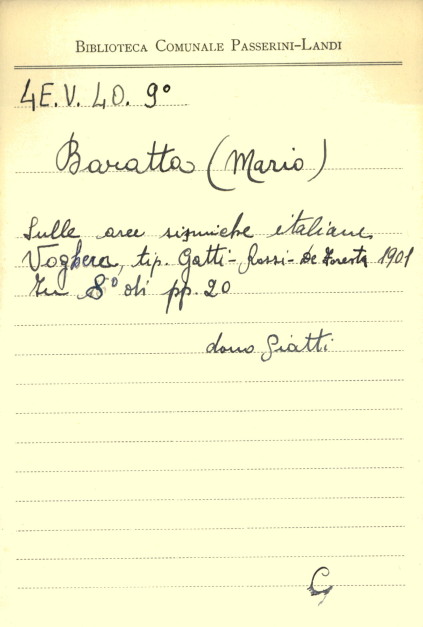 BIBLIOTECA COMUNALE PASSERINI-LANDI
4E.V.40.9°
Baratta (Mario)
Sulle aree sismiche italiane
Voghera, tip. Gatti-Rossi-De Foresta 1901
In 8° di pp. 20
dono Giatti